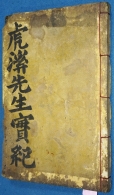 虎溪先生實紀